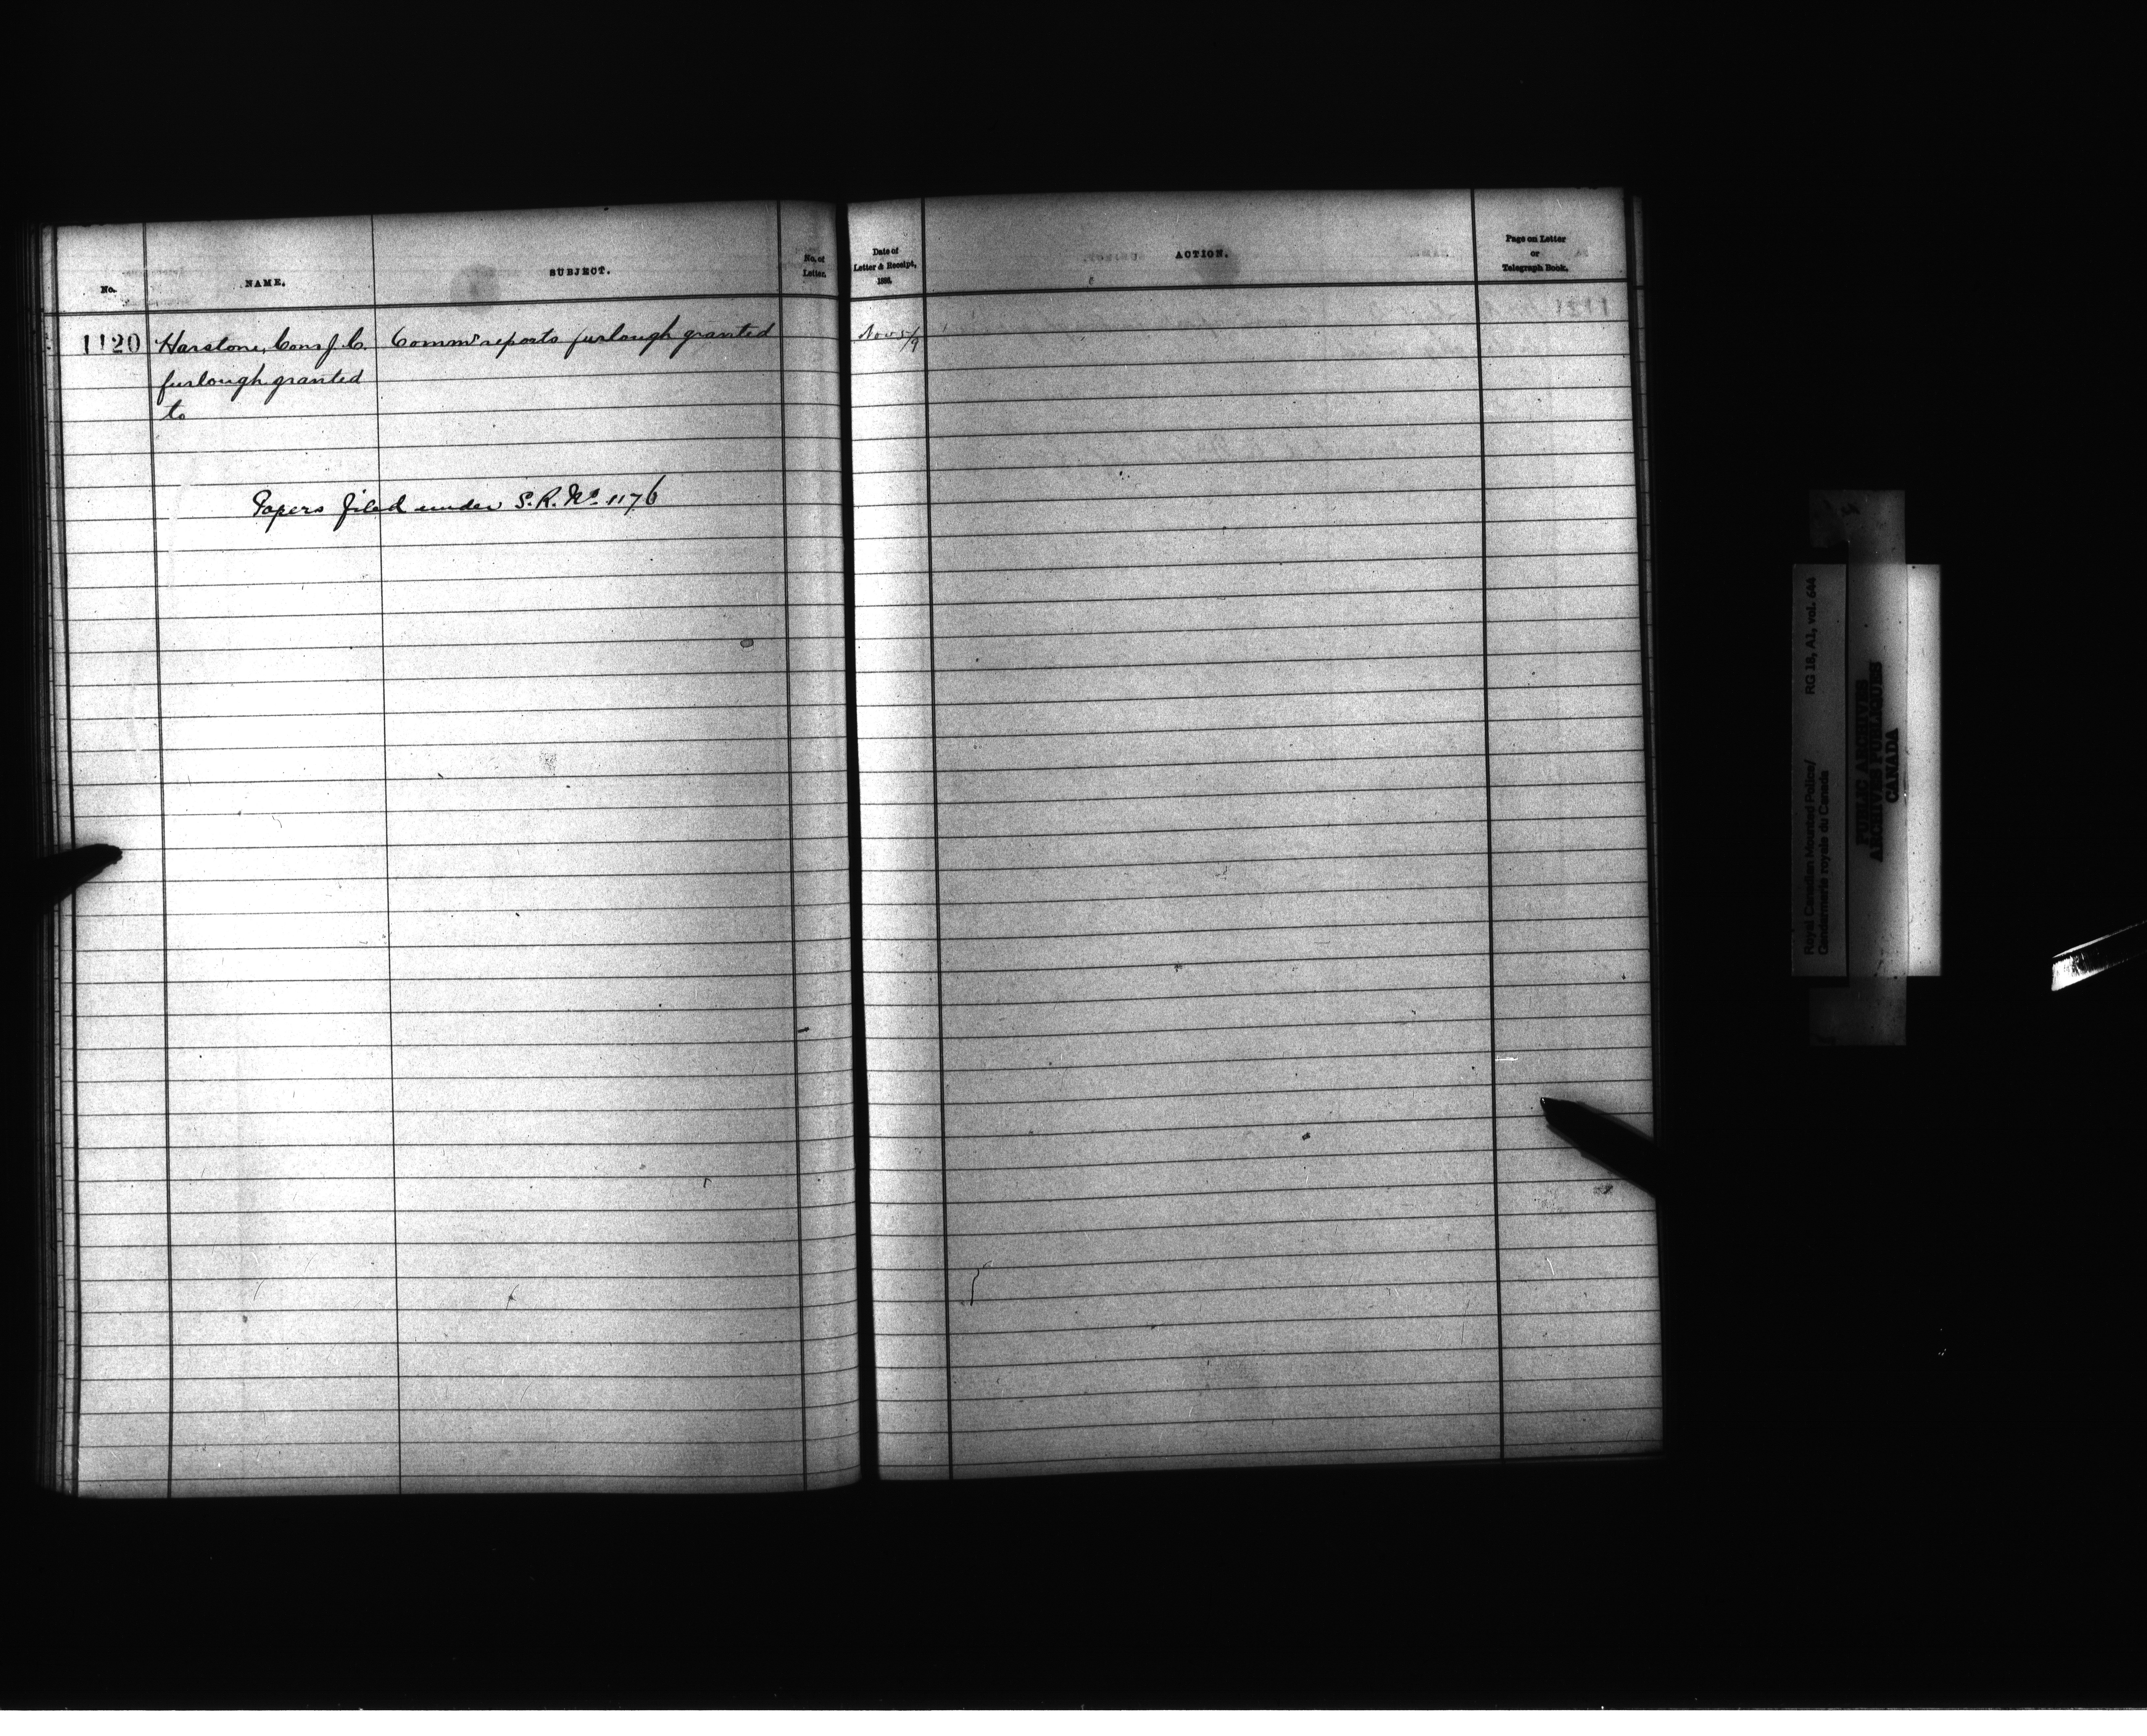 No.
NAME.
SUBJECT.
No. of
Letter.
Date of
Letter & Receipt,
ACTION.
Page on Letter
or
Telegraph Book.
1120 Harstone, Cons J. C. Commr reports furlough granted Nov 5/9
furlough granted
to
Papers filed under S. R. No 1176
Royal Canadian Mounted Police/ RG 18, A1, vol. 644
Gendarmerie royale du Canada
PUBLIC ARCHIVES
ARCHIVES PUBLIQUES
CANADA